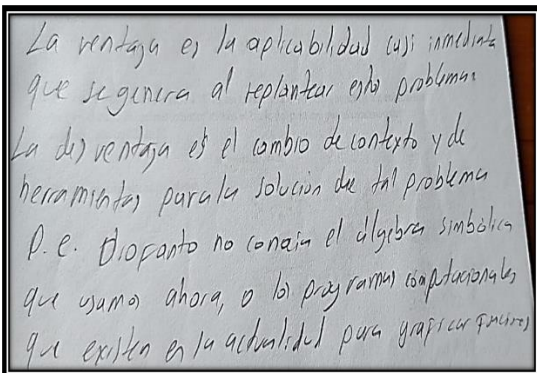 La ventaja es la aplicabilidad casi inmediata
que se genera al replantear estos problemas
La desventaja es el cambio de contexto y de
herramientas para la solución de tal problema
P.e. Diofanto no conocía el álgebra simbólica
que usamos ahora, o los programas computacionales
que existen en la actualidad para graficar funciones